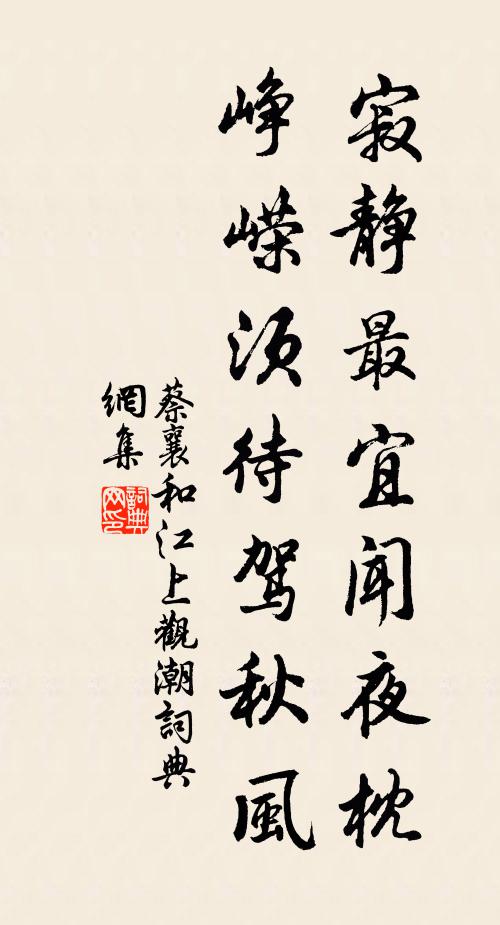 寂静最宜聞夜枕
峥嶸須待駕秋風
蔡襄和江上觀潮詞典
網集
詞典
网印